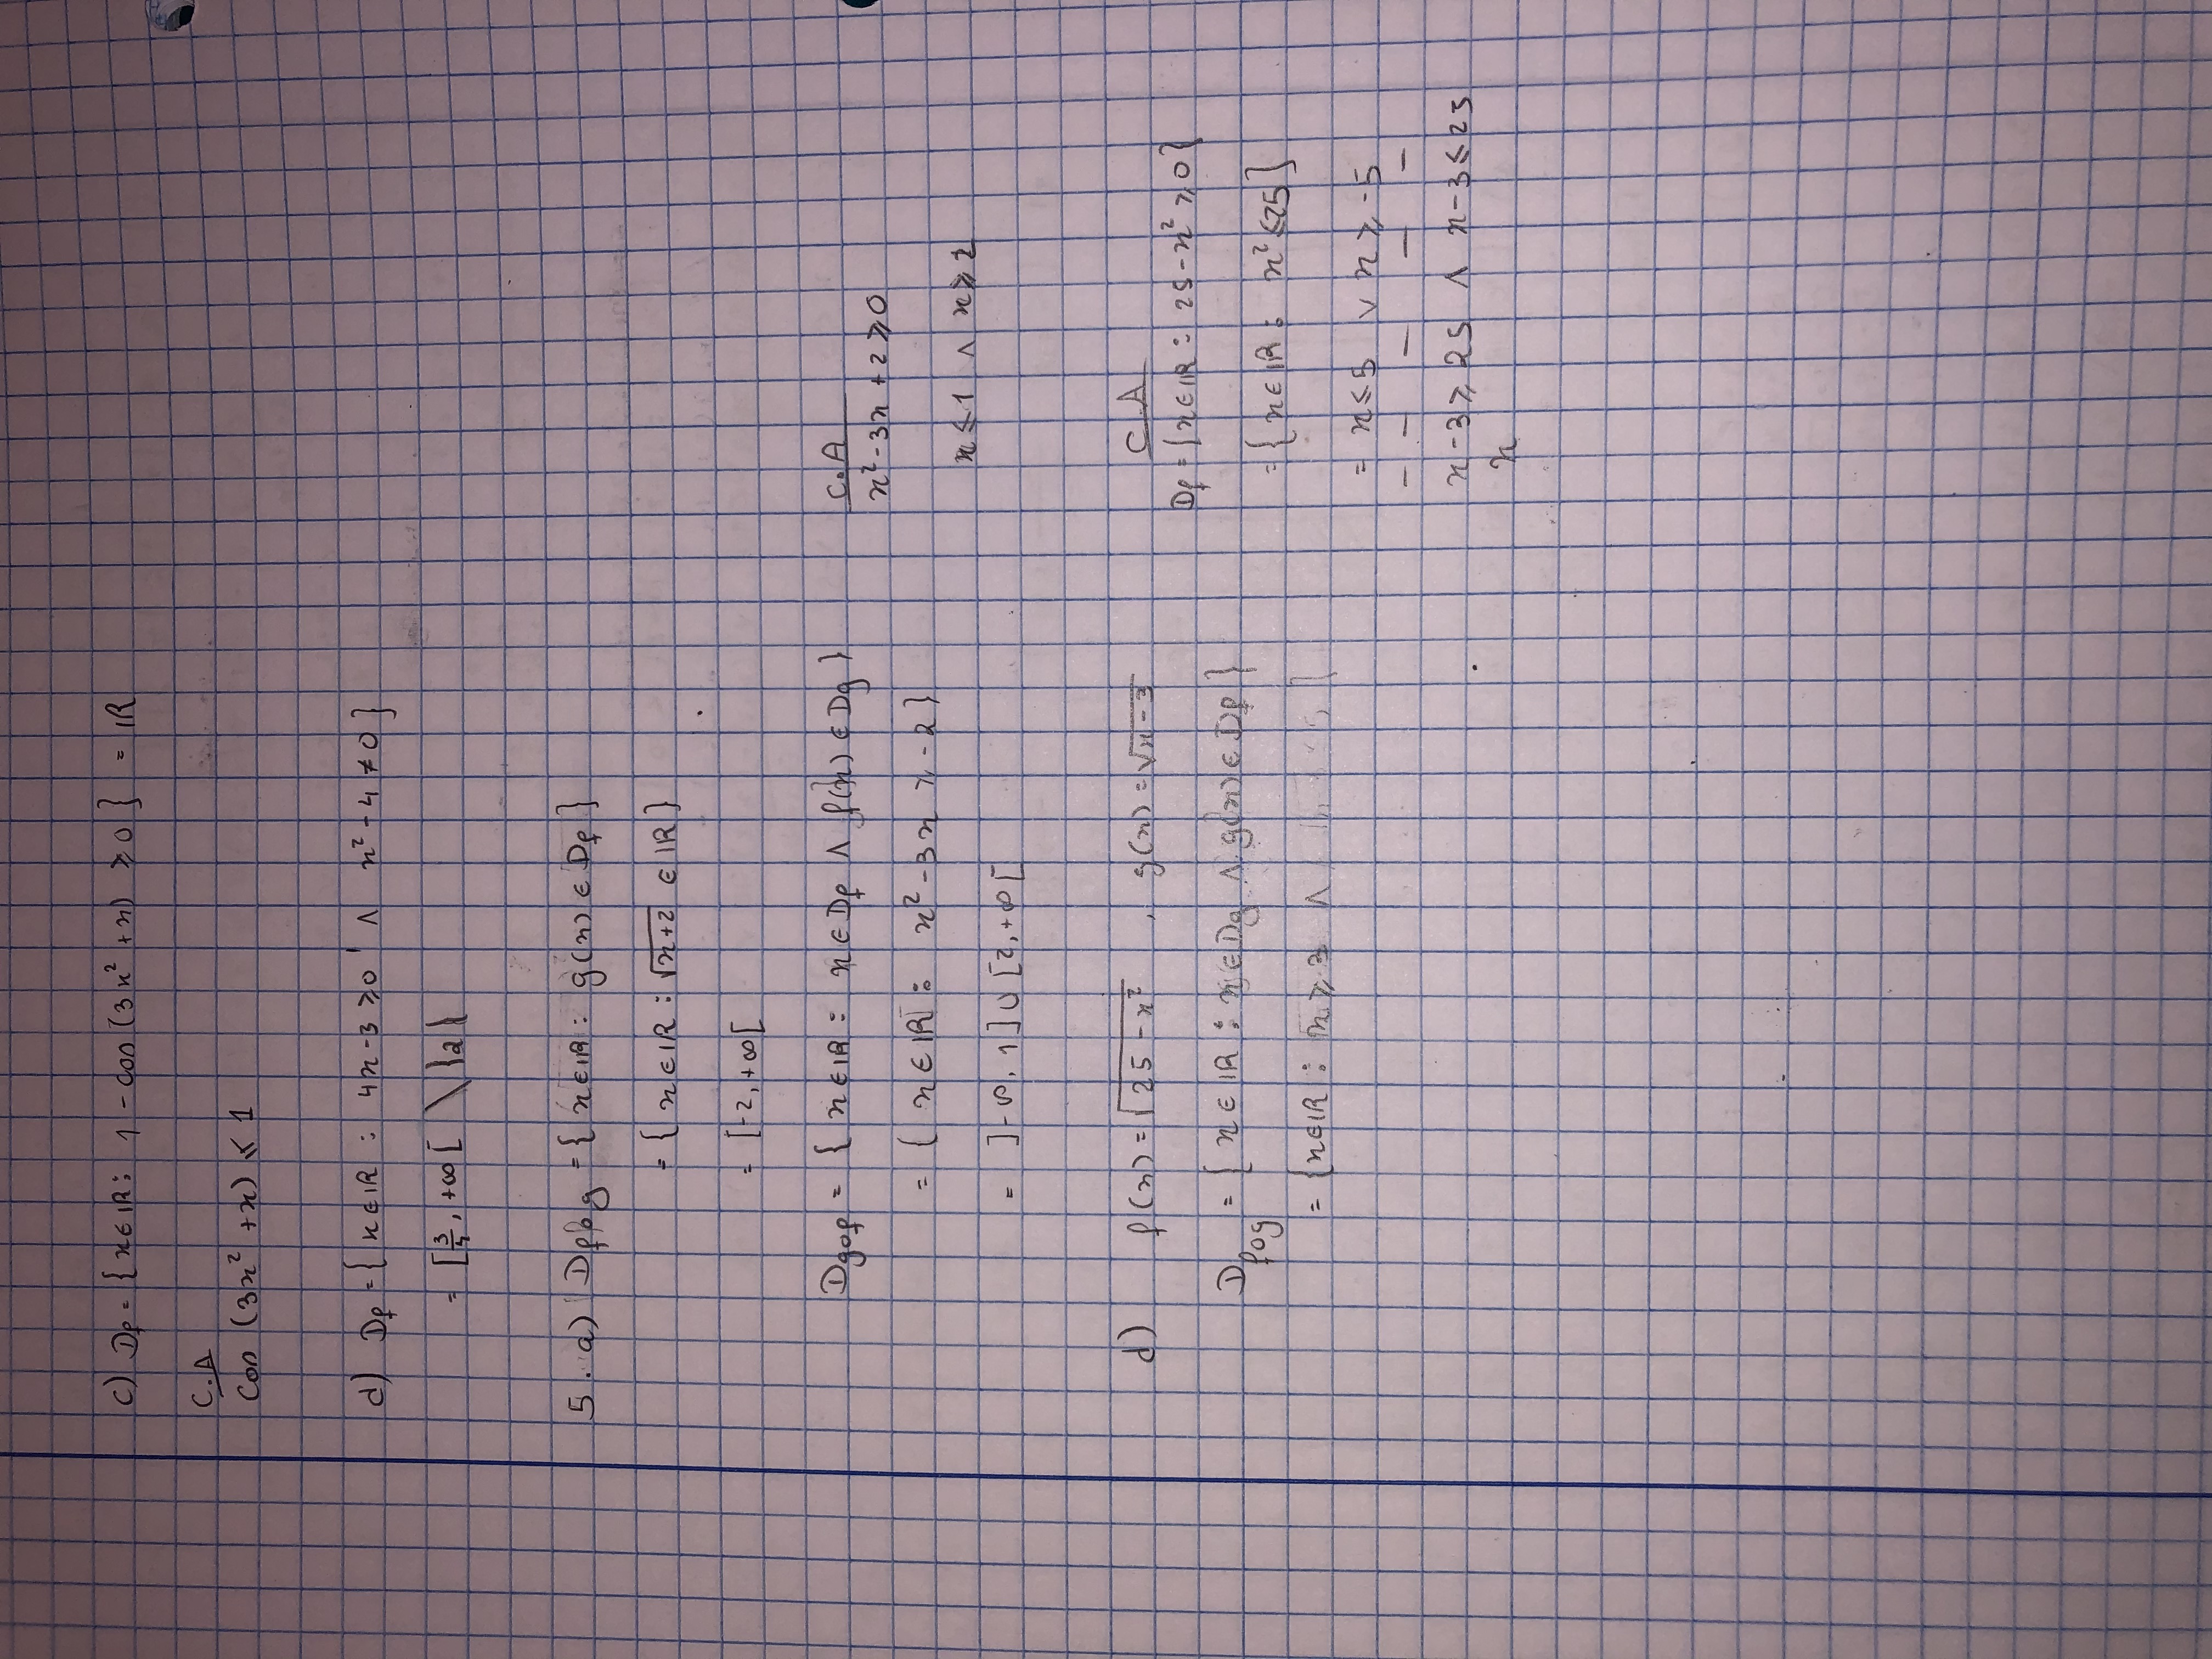 c) Df = {x∈ℝ: 1 - cos (3x² + x) ⩾ 0} = ℝ
C.A
cos (3x² + x) ⩽ 1
d) Df = {x∈ℝ : 4x-3 ⩾ 0 ∧ x² - 4 ≠ 0}
= [3/4, +∞[ \ {2}
5. a) Dfog = {x∈ℝ: g(x) ∈ Df}
= {x∈ℝ : √(x+2) ∈ ℝ}
= [-2, +∞[
Dgof = {x∈ℝ: x∈Df ∧ f(x) ∈ Dg}
= {x∈ℝ: x² - 3x ⩾ -2}
= ]-∞, 1] ∪ [2, +∞[
C.A
x² - 3x + 2 ⩾ 0
x ⩽ 1 ∧ x ⩾ 2
d) f(x) = √(25 - x²) , g(x) = √(x-3)
Dfog = {x∈ℝ : x∈Dg ∧ g(x) ∈ Df}
= {x∈ℝ : x ⩾ 3 ∧ }
C.A
Df = {x∈ℝ : 25 - x² ⩾ 0}
= {x∈ℝ : x² ⩽ 25}
= x ⩽ 5 ∨ x ⩾ -5
x - 3 ⩾ 25 ∧ x - 3 ⩽ 25
x